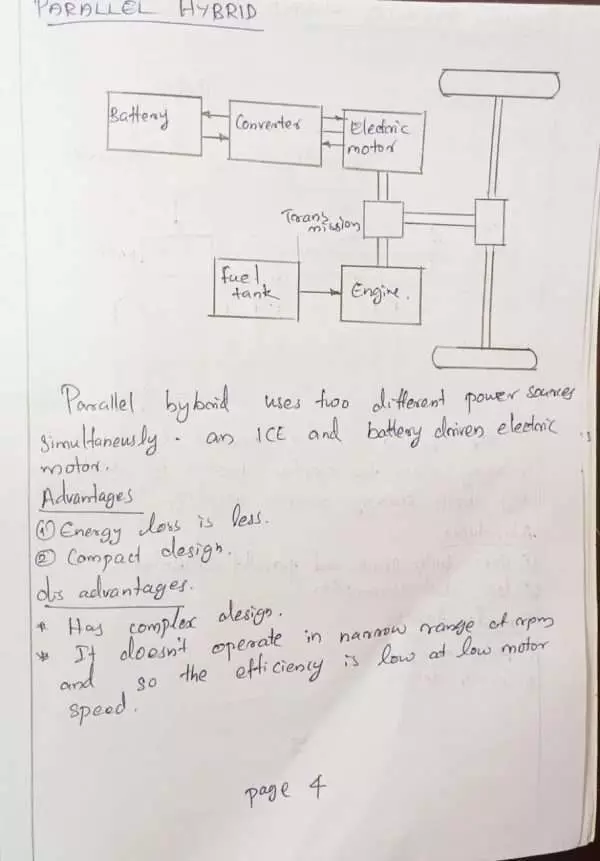 PARALLEL HYBRID
Battery
Converter
Electric
motor
Trans
mission
fuel
tank
Engine.
Parallel hybrid uses two different power sources
simultaneusly. an ICE and battery driven electric
motor.
Advantages
① Energy loss is less.
② Compact design.
dis advantages.
* Has complex design.
* It doesn't operate in narrow range of rpm
and so the efficiency is low at low motor
speed.
page 4